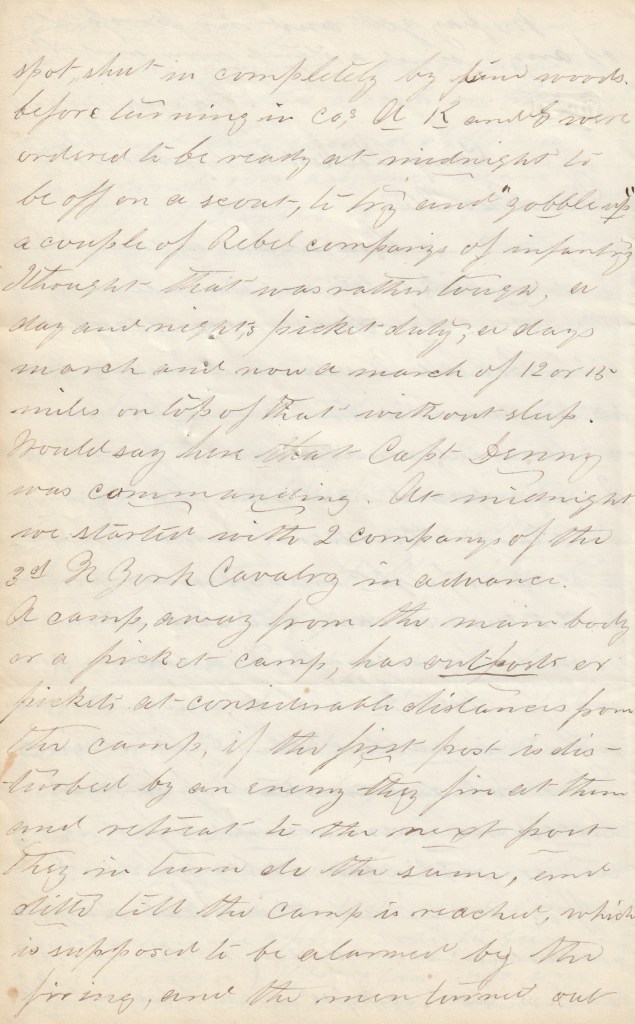 spot, shut in completely by pine woods.
before turning in co,s A K and E were
ordered to be ready at midnight to
be off on a scout, to try and "gobble up"
a couple of Rebel companys of infantry
I thought that was rather tough, a
day and night,s picket duty; a days
march and now a march of 12 or 15
miles on top of that without sleep.
Would say here that Capt Denny
was commanding. At midnight
we started with 2 companys of the
3d N York Cavalry in advance.
A camp, away from the main body
or a picket camp, has outposts or
pickets at considerable distances from
the camp, if the first post is dis-
turbed by an enemy they fire at them
and retreat to the next post
they in turn do the same, and
ditto till the camp is reached, which
is supposed to be alarmed by the
firing, and the men turned out